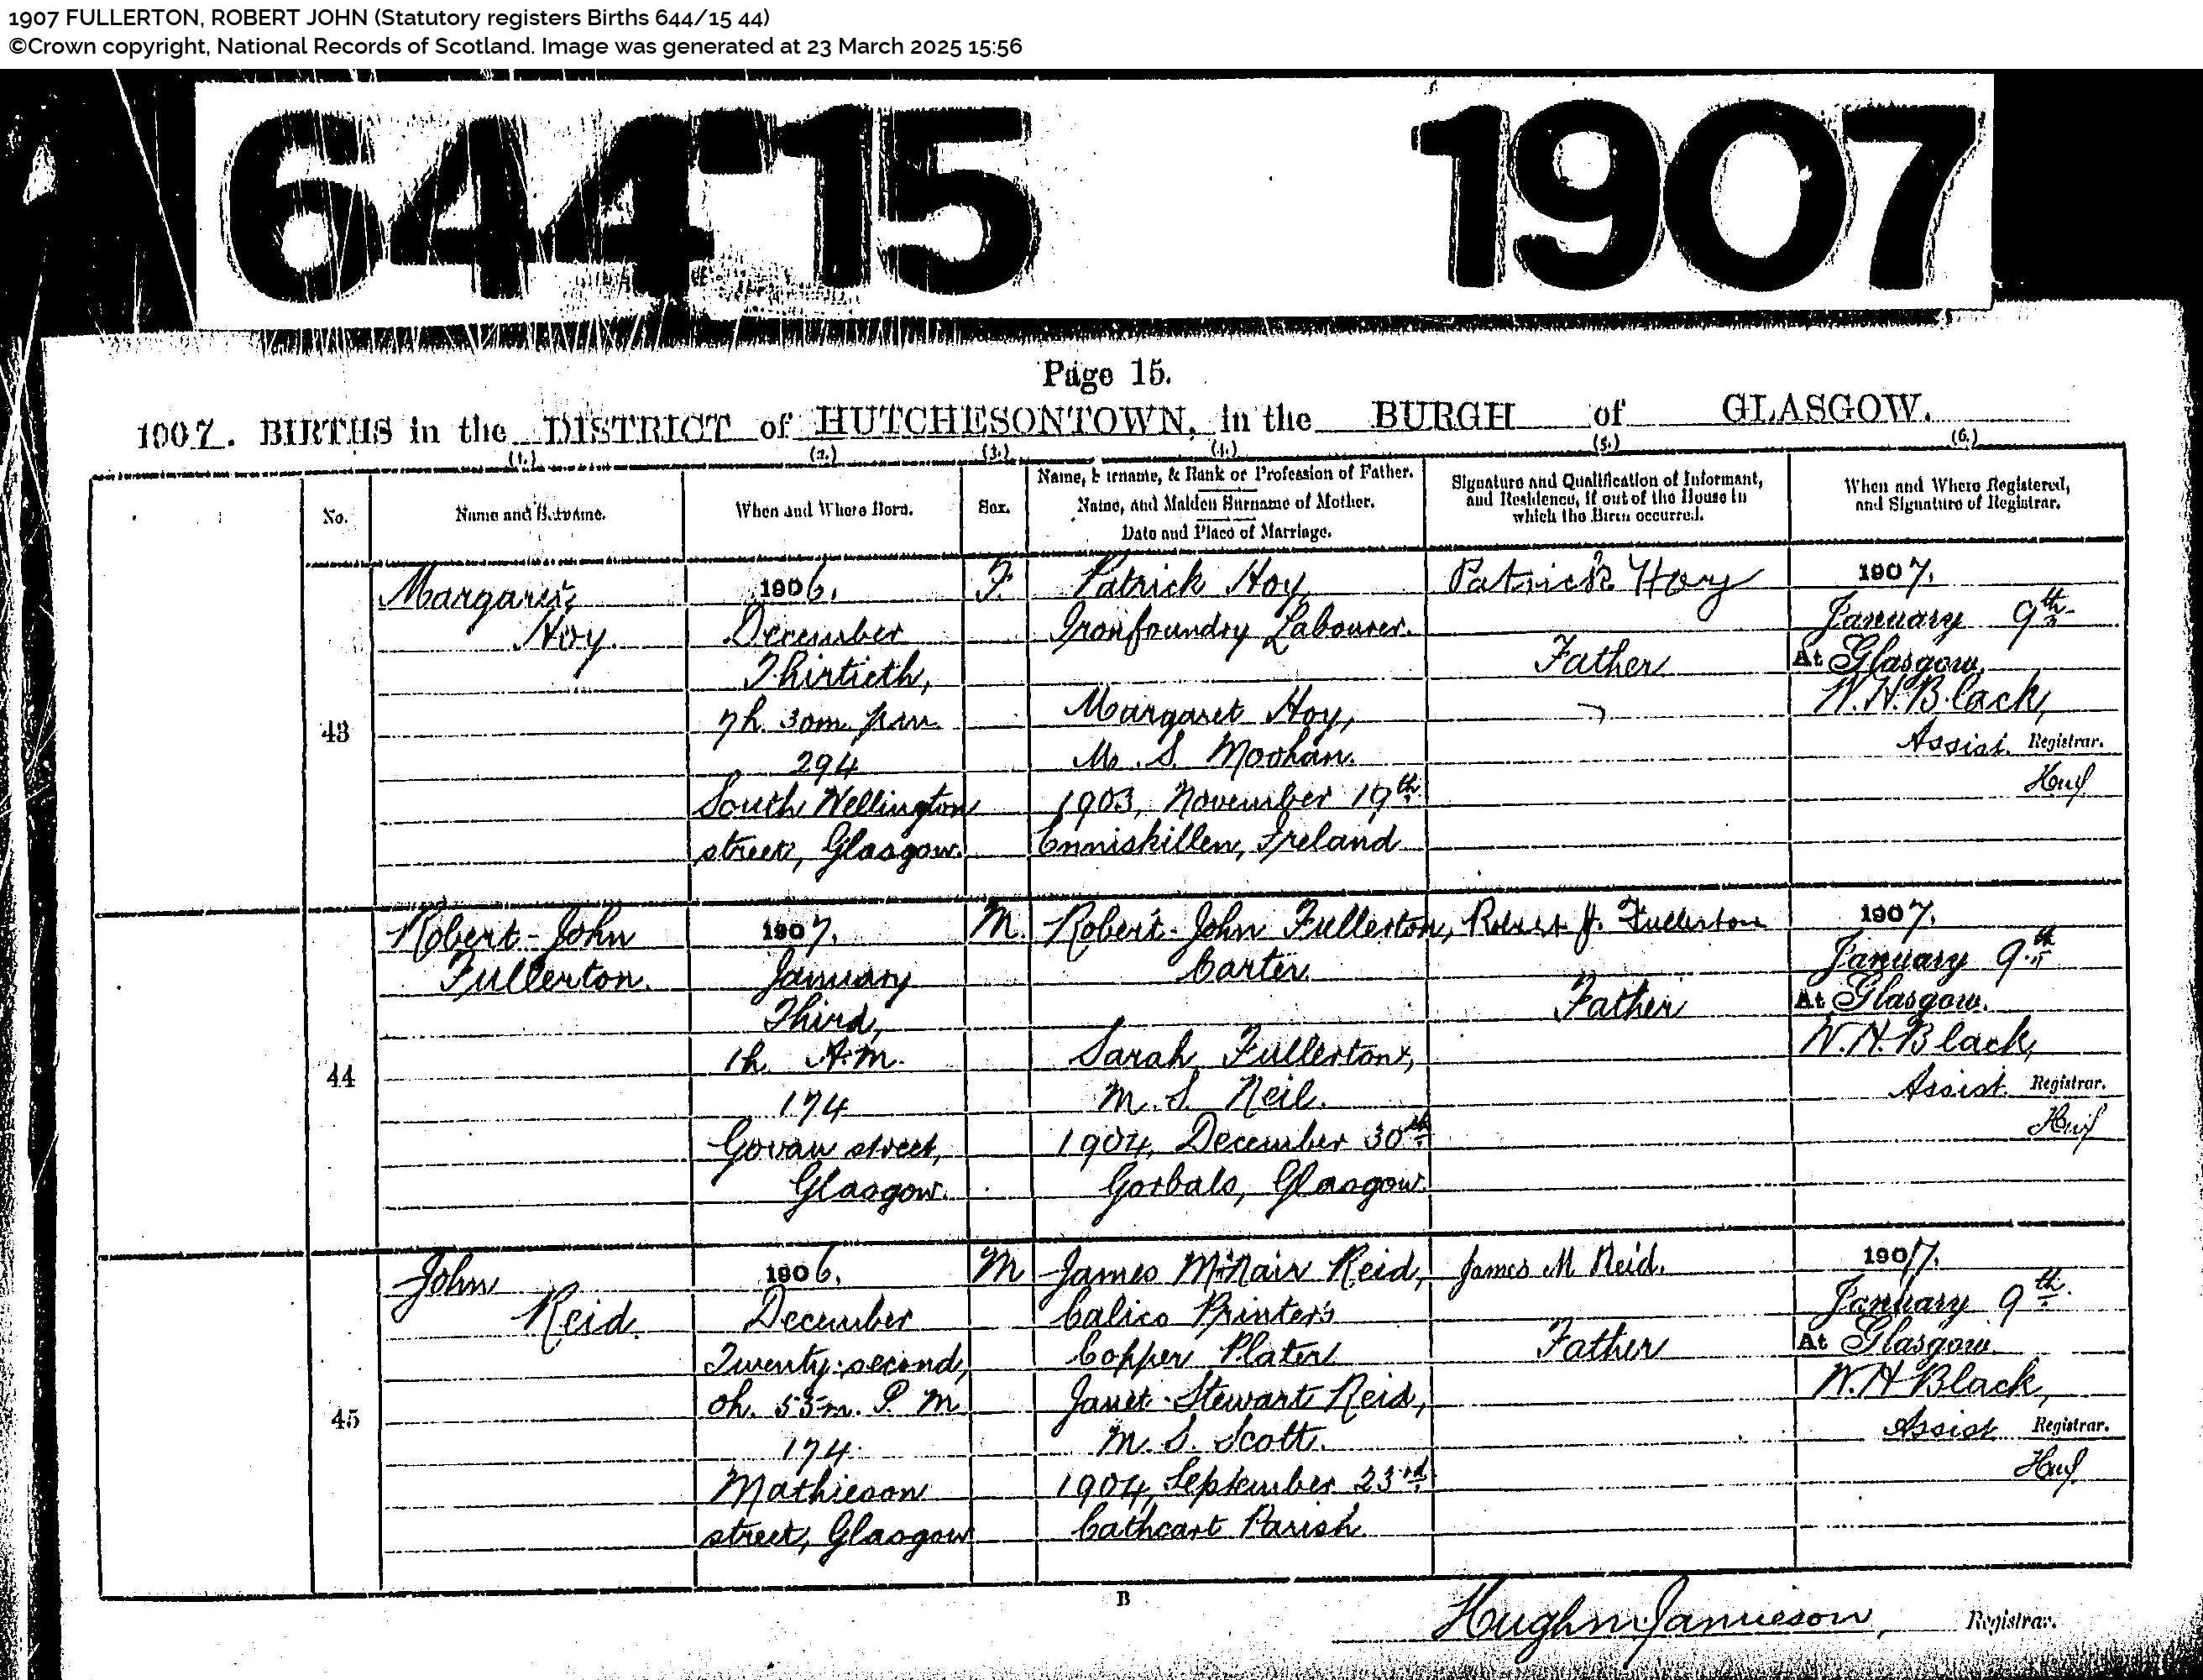 1907 FULLERTON, ROBERT JOHN (Statutory registers Births 644/15 44)
©Crown copyright, National Records of Scotland. Image was generated at 23 March 2025 15:56
644-15 1907
Page 15.
1907. BIRTHS in the DISTRICT of HUTCHESONTOWN, in the BURGH of GLASGOW.
(1.) (2.) (3.) (4.) (5.) (6.)
No.
Name and Surname.
When and Where Born.
Sex.
Name, Surname, & Rank or Profession of Father.
Name, and Maiden Surname of Mother.
Date and Place of Marriage.
Signature and Qualification of Informant,
and Residence, if out of the House in
which the Birth occurred.
When and Where Registered,
and Signature of Registrar.
43
Margaret
Hoy.
1906.
December
Thirtieth,
7h. 30m. P.M.
294
South Wellington
street, Glasgow.
F.
Patrick Hoy,
Ironfoundry Labourer.
Margaret Hoy,
M. S. Moohan.
1903, November 19th
Enniskillen, Ireland
Patrick Hoy
Father
1907.
January 9th
At Glasgow.
W. H. Black,
Assist. Registrar.
44
Robert John
Fullerton.
1907.
January
Third,
1h. A.M.
174
Govan street,
Glasgow.
M.
Robert John Fullerton,
Carter
Sarah Fullerton,
M. S. Neil.
1904, December 30th
Gorbals, Glasgow.
Robert J. Fullerton
Father
1907.
January 9th
At Glasgow.
W. H. Black,
Assist. Registrar.
45
John
Reid.
1906.
December
Twenty-second,
0h. 55m. P. M
174
Mathieson
street, Glasgow
M
James McNair Reid,
Calico Printer's
Copper Plater
Janet Stewart Reid,
M. S. Scott.
1904, September 23rd
Cathcart Parish
James M Reid.
Father
1907.
January 9th
At Glasgow.
W. H Black,
Assist Registrar.
B
Hugh M. Jamieson, Registrar.